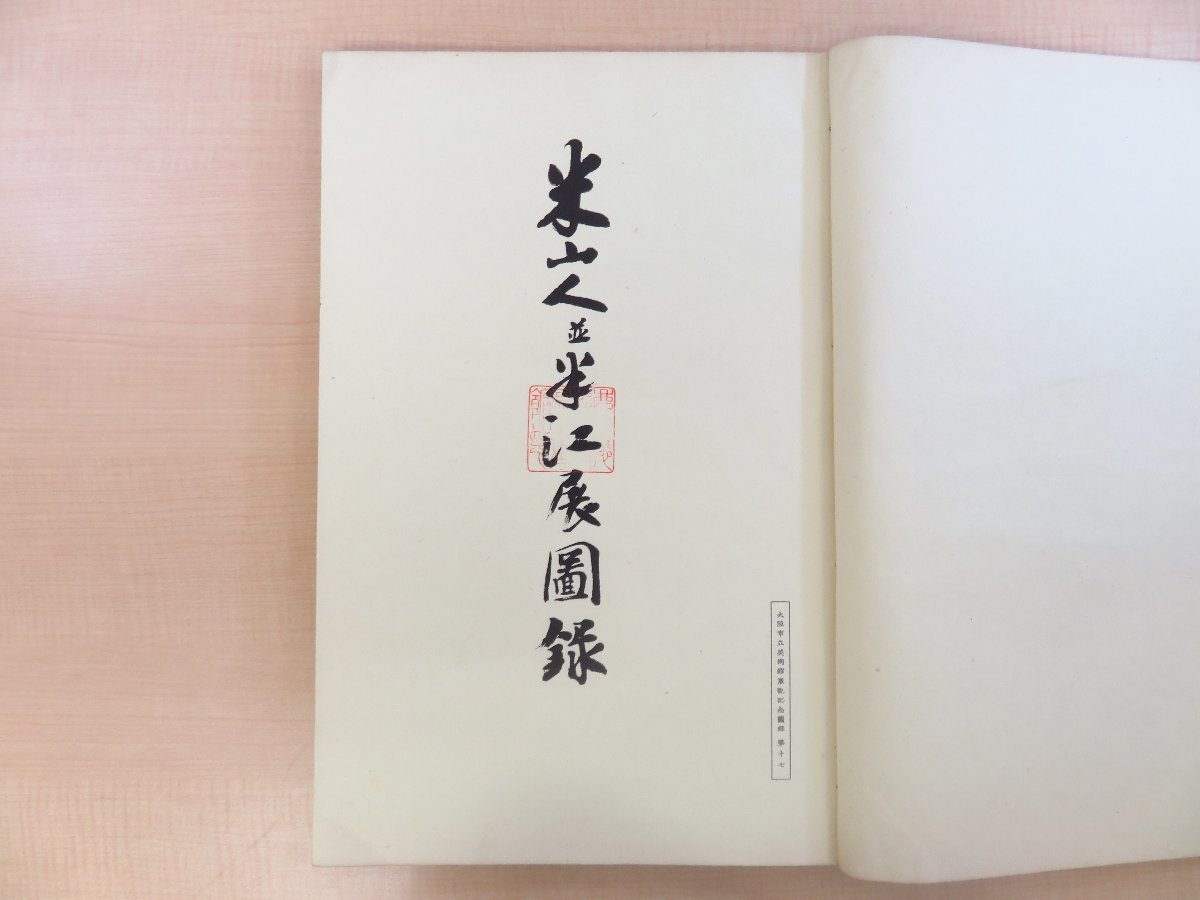 大阪市立美術館展觀記念圖録 第十七
米山人並半江展圖錄